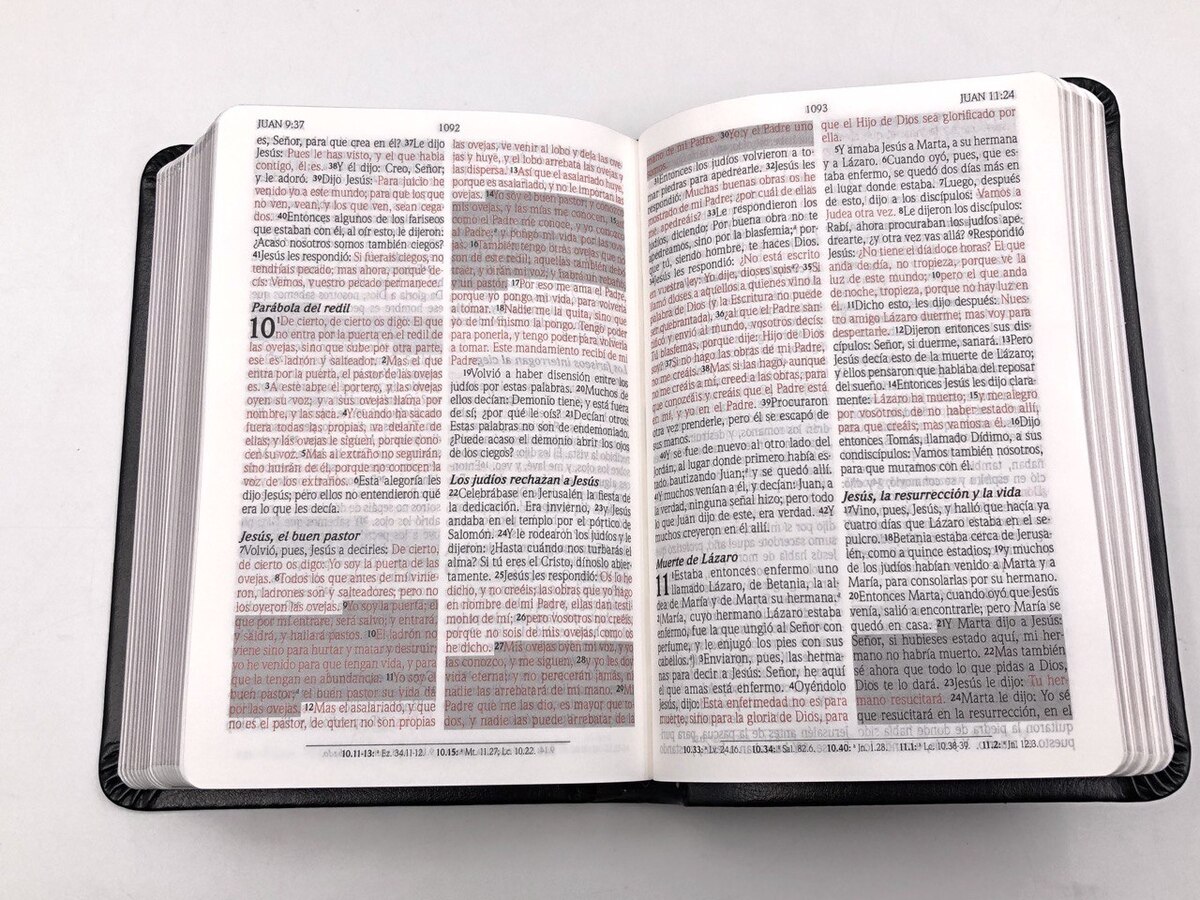 JUAN 9:37
1092
es, Señor, para que crea en él? 37Le dijo
Jesús: Pues le has visto, y el que habla
contigo, él es. 38Y él dijo: Creo, Señor;
y le adoró. 39Dijo Jesús: Para juicio he
venido yo a este mundo; para que los que
no ven, vean, y los que ven, sean cega-
dos. 40Entonces algunos de los fariseos
que estaban con él, al oír esto, le dijeron:
¿Acaso nosotros somos también ciegos?
41Jesús les respondió: Si fuerais ciegos, no
tendríais pecado; mas ahora, porque de-
cís: Vemos, vuestro pecado permanece.
Parábola del redil
10 1De cierto, de cierto os digo: El que
no entra por la puerta en el redil de
las ovejas, sino que sube por otra parte,
ese es ladrón y salteador. 2Mas el que
entra por la puerta, el pastor de las ovejas
es. 3A este abre el portero, y las ovejas
oyen su voz; y a sus ovejas llama por
nombre, y las saca. 4Y cuando ha sacado
fuera todas las propias, va delante de
ellas; y las ovejas le siguen, porque cono-
cen su voz. 5Mas al extraño no seguirán,
sino huirán de él, porque no conocen la
voz de los extraños. 6Esta alegoría les
dijo Jesús; pero ellos no entendieron qué
era lo que les decía.
Jesús, el buen pastor
7Volvió, pues, Jesús a decirles: De cierto,
de cierto os digo: Yo soy la puerta de las
ovejas. 8Todos los que antes de mí vinie-
ron, ladrones son y salteadores; pero no
los oyeron las ovejas. 9Yo soy la puerta; el
que por mí entrare, será salvo; y entrará,
y saldrá, y hallará pastos. 10El ladrón no
viene sino para hurtar y matar y destruir;
yo he venido para que tengan vida, y para
que la tengan en abundancia. 11Yo soy el
buen pastor; el buen pastor su vida da
por las ovejas. 12Mas el asalariado, y que
no es el pastor, de quien no son propias
las ovejas, ve venir al lobo y deja las ove-
jas y huye, y el lobo arrebata las ovejas y
las dispersa. 13Así que el asalariado huye,
porque es asalariado, y no le importan las
ovejas. 14Yo soy el buen pastor; y conozco
mis ovejas, y las mías me conocen, 15así
como el Padre me conoce, y yo conozco
al Padre; y pongo mi vida por las ove-
jas. 16También tengo otras ovejas que no
son de este redil; aquellas también debo
traer, y oirán mi voz; y habrá un rebaño,
y un pastor. 17Por eso me ama el Padre,
porque yo pongo mi vida, para volverla
a tomar. 18Nadie me la quita, sino que
yo de mí mismo la pongo. Tengo poder
para ponerla, y tengo poder para volverla
a tomar. Este mandamiento recibí de mi
Padre.
19Volvió a haber disensión entre los
judíos por estas palabras. 20Muchos de
ellos decían: Demonio tiene, y está fuera
de sí; ¿por qué le oís? 21Decían otros:
Estas palabras no son de endemoniado.
¿Puede acaso el demonio abrir los ojos
de los ciegos?
Los judíos rechazan a Jesús
22Celebrábase en Jerusalén la fiesta de
la dedicación. Era invierno, 23y Jesús
andaba en el templo por el pórtico de
Salomón. 24Y le rodearon los judíos y le
dijeron: ¿Hasta cuándo nos turbarás el
alma? Si tú eres el Cristo, dínoslo abier-
tamente. 25Jesús les respondió: Os lo he
dicho, y no creéis; las obras que yo hago
en nombre de mi Padre, ellas dan testi-
monio de mí; 26pero vosotros no creéis,
porque no sois de mis ovejas, como os
he dicho. 27Mis ovejas oyen mi voz, y yo
las conozco, y me siguen, 28y yo les doy
vida eterna; y no perecerán jamás, ni
nadie las arrebatará de mi mano. 29Mi
Padre que me las dio, es mayor que to-
dos, y nadie las puede arrebatar de la
10.11-13: Ez. 34.11-12. 10.15: Mt. 11.27; Lc. 10.22.
1093
JUAN 11:24
mano de mi Padre. 30Yo y el Padre uno
31Entonces los judíos volvieron a to-
mar piedras para apedrearle. 32Jesús les
respondió: Muchas buenas obras os he
mostrado de mi Padre; ¿por cuál de ellas
me apedreáis? 33Le respondieron los
judíos, diciendo: Por buena obra no te
apedreamos, sino por la blasfemia; por
que tú, siendo hombre, te haces Dios.
34Jesús les respondió: ¿No está escrito
en vuestra ley: Yo dije, dioses sois? 35Si
llamó dioses a aquellos a quienes vino la
palabra de Dios (y la Escritura no puede
ser quebrantada), 36¿al que el Padre san-
tificó y envió al mundo, vosotros decís:
Tú blasfemas, porque dije: Hijo de Dios
soy? 37Si no hago las obras de mi Padre,
no me creáis. 38Mas si las hago, aunque
no me creáis a mí, creed a las obras, para
que conozcáis y creáis que el Padre está
en mí, y yo en el Padre. 39Procuraron
otra vez prenderle, pero él se escapó de
sus manos.
40Y se fue de nuevo al otro lado del
Jordán, al lugar donde primero había es-
tado bautizando Juan; y se quedó allí.
41Y muchos venían a él, y decían: Juan, a
la verdad, ninguna señal hizo; pero todo
lo que Juan dijo de este, era verdad. 42Y
muchos creyeron en él allí.
Muerte de Lázaro
11 1Estaba entonces enfermo uno
llamado Lázaro, de Betania, la al-
dea de María y de Marta su hermana.
2(María, cuyo hermano Lázaro estaba
enfermo, fue la que ungió al Señor con
perfume, y le enjugó los pies con sus
cabellos.) 3Enviaron, pues, las herma-
nas para decir a Jesús: Señor, he aquí
el que amas está enfermo. 4Oyéndolo
Jesús, dijo: Esta enfermedad no es para
muerte, sino para la gloria de Dios, para
que el Hijo de Dios sea glorificado por
ella.
5Y amaba Jesús a Marta, a su hermana
y a Lázaro. 6Cuando oyó, pues, que es-
taba enfermo, se quedó dos días más en
el lugar donde estaba. 7Luego, después
de esto, dijo a los discípulos: Vamos a
Judea otra vez. 8Le dijeron los discípulos:
Rabí, ahora procuraban los judíos ape-
drearte, ¿y otra vez vas allá? 9Respondió
Jesús: ¿No tiene el día doce horas? El que
anda de día, no tropieza, porque ve la
luz de este mundo; 10pero el que anda
de noche, tropieza, porque no hay luz en
él. 11Dicho esto, les dijo después: Nues-
tro amigo Lázaro duerme; mas voy para
despertarle. 12Dijeron entonces sus dis-
cípulos: Señor, si duerme, sanará. 13Pero
Jesús decía esto de la muerte de Lázaro;
y ellos pensaron que hablaba del reposar
del sueño. 14Entonces Jesús les dijo clara-
mente: Lázaro ha muerto; 15y me alegro
por vosotros, de no haber estado allí,
para que creáis; mas vamos a él. 16Dijo
entonces Tomás, llamado Dídimo, a sus
condiscípulos: Vamos también nosotros,
para que muramos con él.
Jesús, la resurrección y la vida
17Vino, pues, Jesús, y halló que hacía ya
cuatro días que Lázaro estaba en el se-
pulcro. 18Betania estaba cerca de Jerusa-
lén, como a quince estadios; 19y muchos
de los judíos habían venido a Marta y a
María, para consolarlas por su hermano.
20Entonces Marta, cuando oyó que Jesús
venía, salió a encontrarle; pero María se
quedó en casa. 21Y Marta dijo a Jesús:
Señor, si hubieses estado aquí, mi her-
mano no habría muerto. 22Mas también
sé ahora que todo lo que pidas a Dios,
Dios te lo dará. 23Jesús le dijo: Tu her-
mano resucitará. 24Marta le dijo: Yo sé
que resucitará en la resurrección, en el
10.33: Lv. 24.16. 10.34: Sal. 82.6. 10.40: Jn. 1.28. 11.1: Lc. 10.38-39. 11.2: Jn. 12.3.